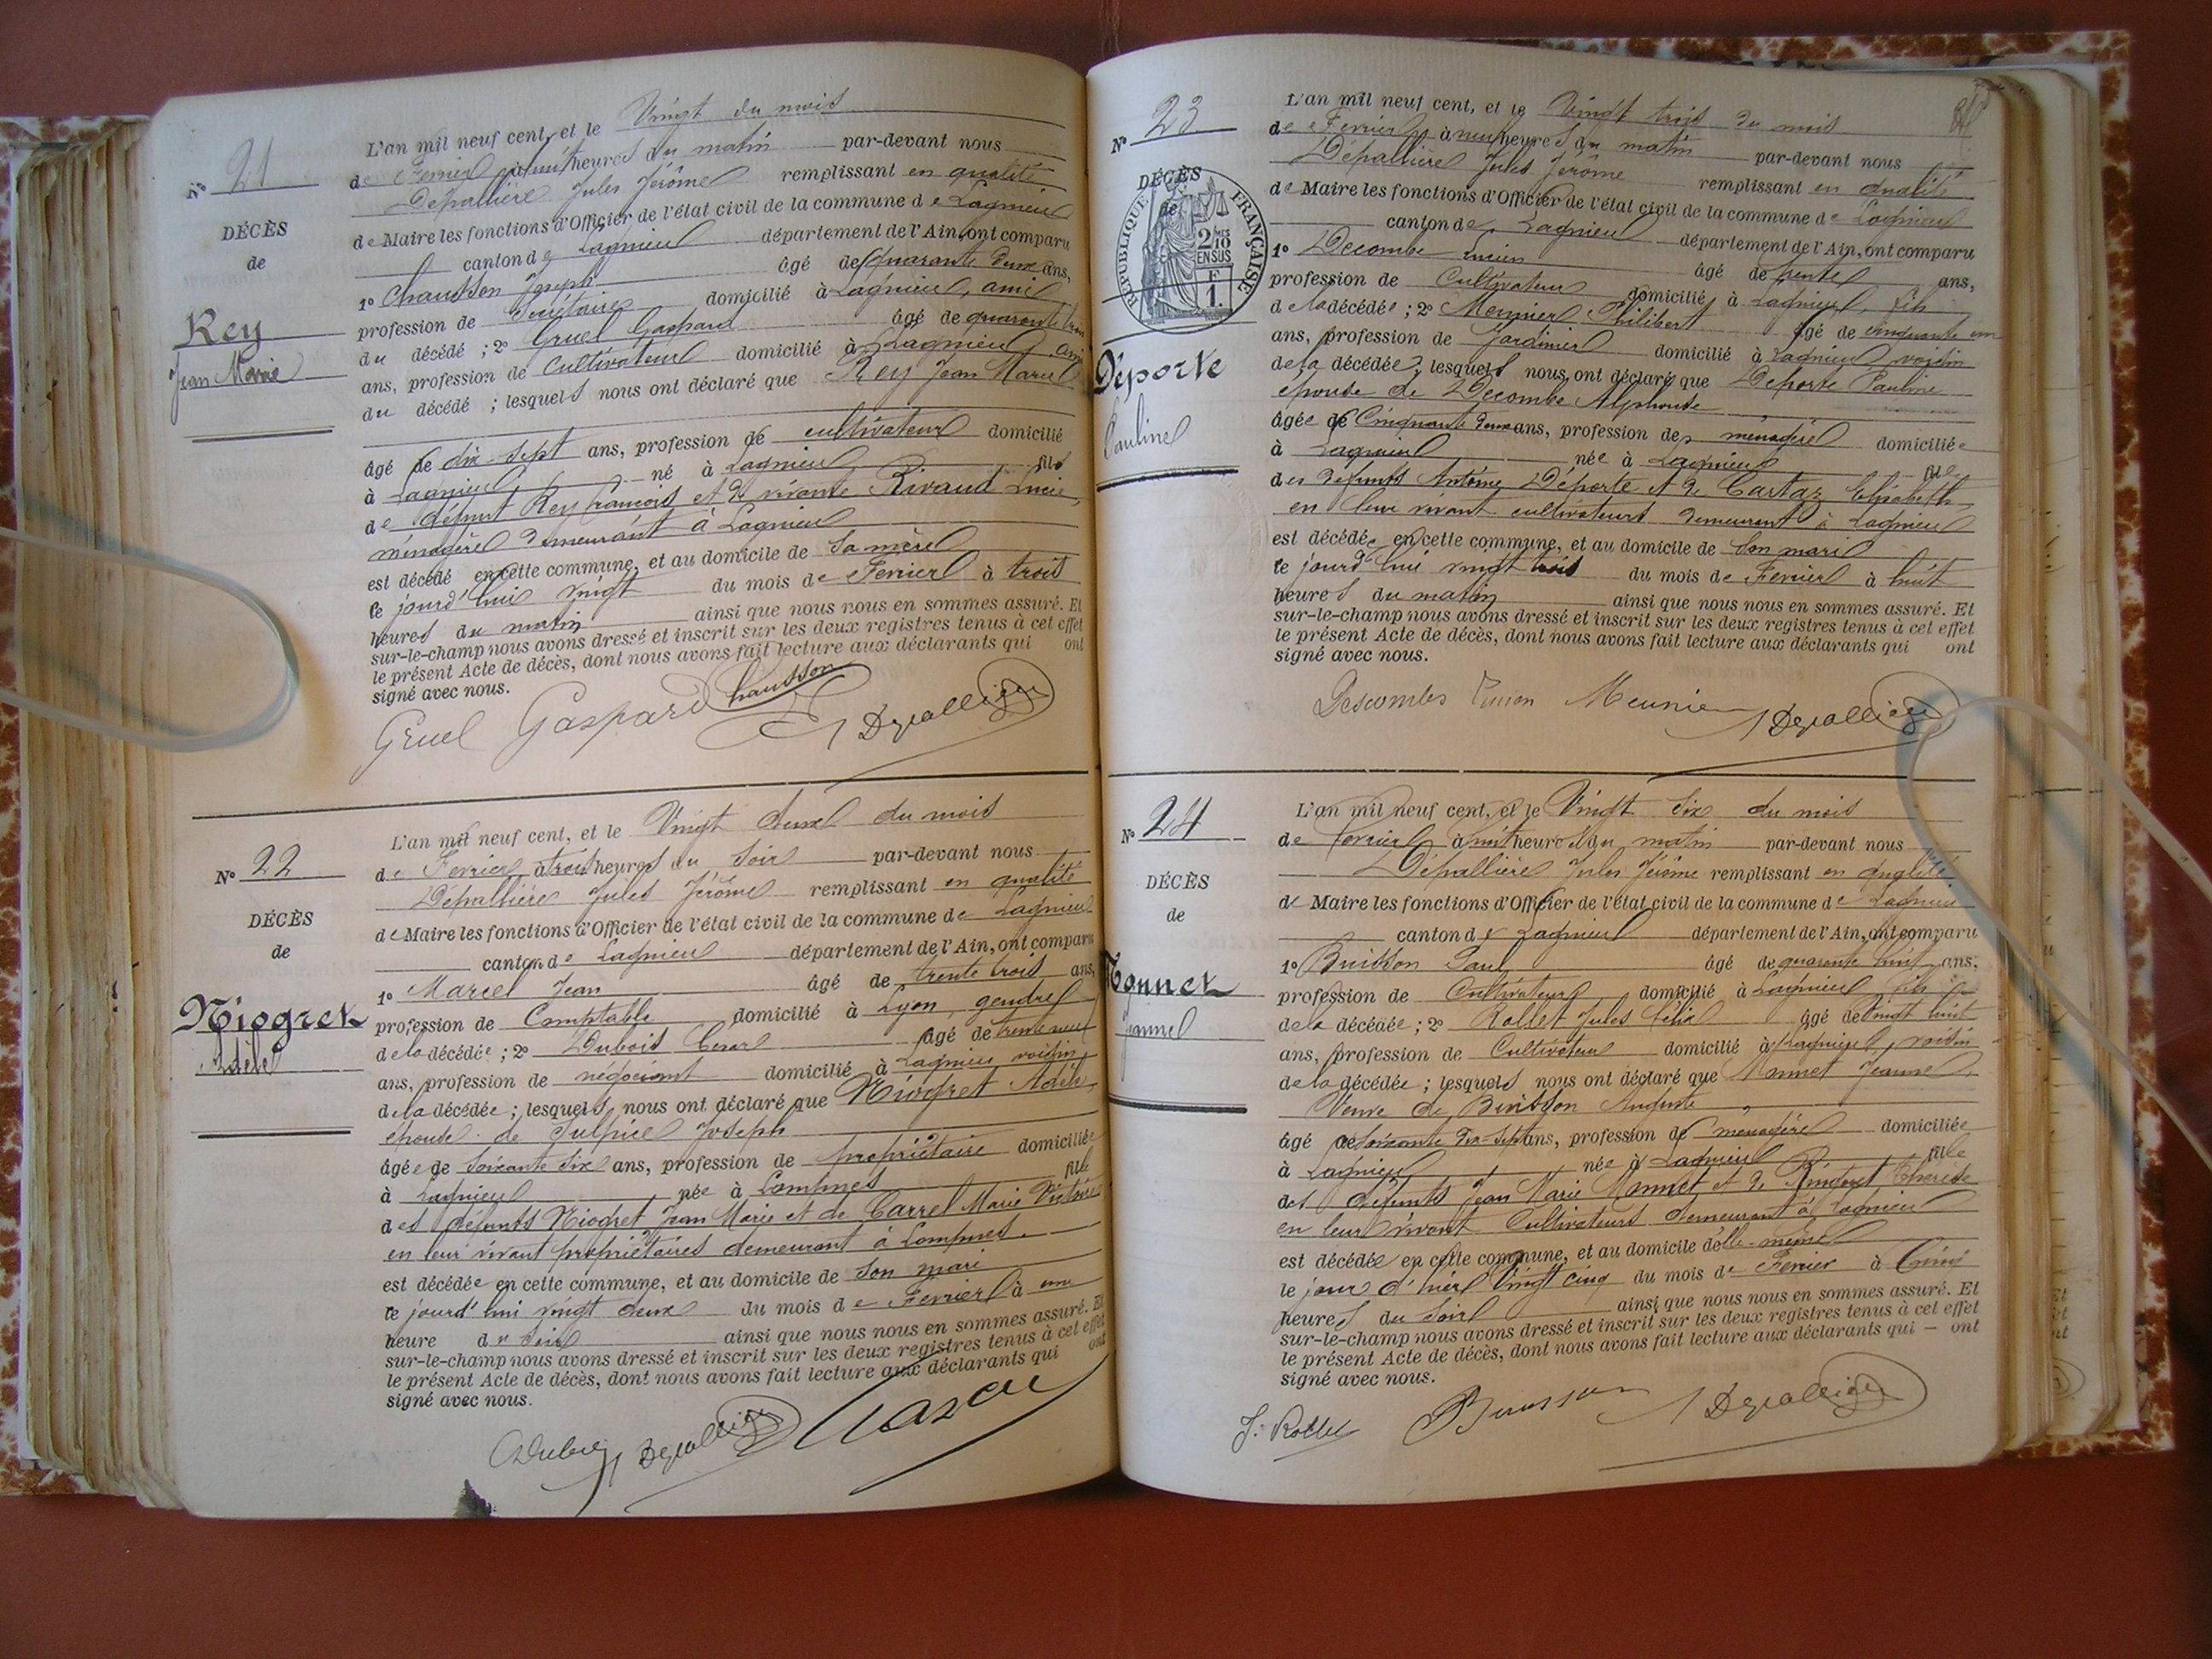 N° 21
DÉCÈS
de
Rey
Jean Marie
L'an mil neuf cent, et le Vingt du mois
de Fevrier à huit heures du matin par-devant nous
Dépallière Jules Jérôme remplissant en qualité
de Maire les fonctions d'Officier de l'état civil de la commune de Lagnieu
canton de Lagnieu département de l'Ain, ont comparu
1° Chausson Joseph âgé de quarante deux ans,
profession de Secrétaire domicilié à Lagnieu, ami
du décédé ; 2° Gruel Gaspard âgé de quarante
ans, profession de Cultivateur domicilié à Lagnieu, ami
du décédé ; lesquels nous ont déclaré que Rey Jean Marie
âgé de dix-sept ans, profession de cultivateur domicilié
à Lagnieu né à Lagnieu fils
de défunt Rey François et de vivante Rivaud Lucie,
ménagère demeurant à Lagnieu
est décédé en cette commune, et au domicile de sa mère
le jourd'hui vingt du mois de Fevrier à trois
heures du matin ainsi que nous nous en sommes assuré. Et
sur-le-champ nous avons dressé et inscrit sur les deux registres tenus à cet effet
le présent Acte de décès, dont nous avons fait lecture aux déclarants qui ont
signé avec nous.
Gruel Gaspard Chausson Depallière
N° 22
DÉCÈS
de
Niogret
Adèle
L'an mil neuf cent, et le Vingt deux du mois
de Fevrier à trois heures du soir par-devant nous
Dépallière Jules Jérôme remplissant en qualité
de Maire les fonctions d'Officier de l'état civil de la commune de Lagnieu
canton de Lagnieu département de l'Ain, ont comparu
1° Marcel Jean âgé de trente trois ans,
profession de Comptable domicilié à Lyon, gendre
de la décédée ; 2° Dubois Cesar âgé de trente neuf
ans, profession de négociant domicilié à Lagnieu voisin
de la décédée ; lesquels nous ont déclaré que Niogret Adèle,
épouse de Sulpice Joseph
âgée de soixante six ans, profession de propriétaire domiciliée
à Lagnieu née à Lompnes fille
des défunts Niogret Jean Marie et de Carrel Marie Victoire
en leur vivant propriétaires demeurant à Lompnes.
est décédée en cette commune, et au domicile de son mari
le jourd'hui vingt deux du mois de Fevrier à une
heure du soir ainsi que nous nous en sommes assuré. Et
sur-le-champ nous avons dressé et inscrit sur les deux registres tenus à cet effet
le présent Acte de décès, dont nous avons fait lecture aux déclarants qui ont
signé avec nous.
Dubois Depallière
N° 23
DÉCÈS
de
RÉPUBLIQUE FRANÇAISE
2 MES
10
EN SUS
F
1.
Déporte
Pauline
L'an mil neuf cent, et le Vingt trois du mois
de Fevrier à neuf heures du matin par-devant nous
Dépallière Jules Jérôme remplissant en qualité
de Maire les fonctions d'Officier de l'état civil de la commune de Lagnieu
canton de Lagnieu département de l'Ain, ont comparu
1° Decombe Lucien âgé de trente ans,
profession de Cultivateur domicilié à Lagnieu, fils
de la décédée ; 2° Meunier Philibert âgé de cinquante un
ans, profession de Jardinier domicilié à Lagnieu, voisin
de la décédée, lesquels nous ont déclaré que Déporte Pauline
épouse de Decombe Alphonse
âgée de Cinquante deux ans, profession de ménagère domiciliée
à Lagnieu née à Lagnieu fille
des défunts Antoine Déporte et de Cartaz Elisabeth
en leur vivant cultivateurs demeurant à Lagnieu
est décédée en cette commune, et au domicile de son mari
le jourd'hui vingt trois du mois de Fevrier à huit
heures du matin ainsi que nous nous en sommes assuré. Et
sur-le-champ nous avons dressé et inscrit sur les deux registres tenus à cet effet
le présent Acte de décès, dont nous avons fait lecture aux déclarants qui ont
signé avec nous.
Descombes Lucien Meunier Depallière
N° 24
DÉCÈS
de
Monnet
Jeanne
L'an mil neuf cent, et le Vingt six du mois
de Fevrier à huit heures du matin par-devant nous
Dépallière Jules Jérôme remplissant en qualité
de Maire les fonctions d'Officier de l'état civil de la commune de Lagnieu
canton de Lagnieu département de l'Ain, ont comparu
1° Buisson Paul âgé de quarante huit ans,
profession de Cultivateur domicilié à Lagnieu fils
de la décédée ; 2° Rollet Jules Félix âgé de Vingt huit
ans, profession de Cultivateur domicilié à Lagnieu, voisin
de la décédée ; lesquels nous ont déclaré que Monnet Jeanne,
Veuve de Buisson Auguste
âgé de soixante dix-sept ans, profession de ménagère domiciliée
à Lagnieu née à Lagnieu fille
des défunts Jean Marie Monnet et de Thérèse
en leur vivant Cultivateurs demeurant à Lagnieu
est décédée en cette commune, et au domicile d'elle-même
le jour d'hier Vingt cinq du mois de Fevrier à Cinq
heures du soir ainsi que nous nous en sommes assuré. Et
sur-le-champ nous avons dressé et inscrit sur les deux registres tenus à cet effet
le présent Acte de décès, dont nous avons fait lecture aux déclarants qui – ont
signé avec nous.
J. Rollet Buisson Depallière